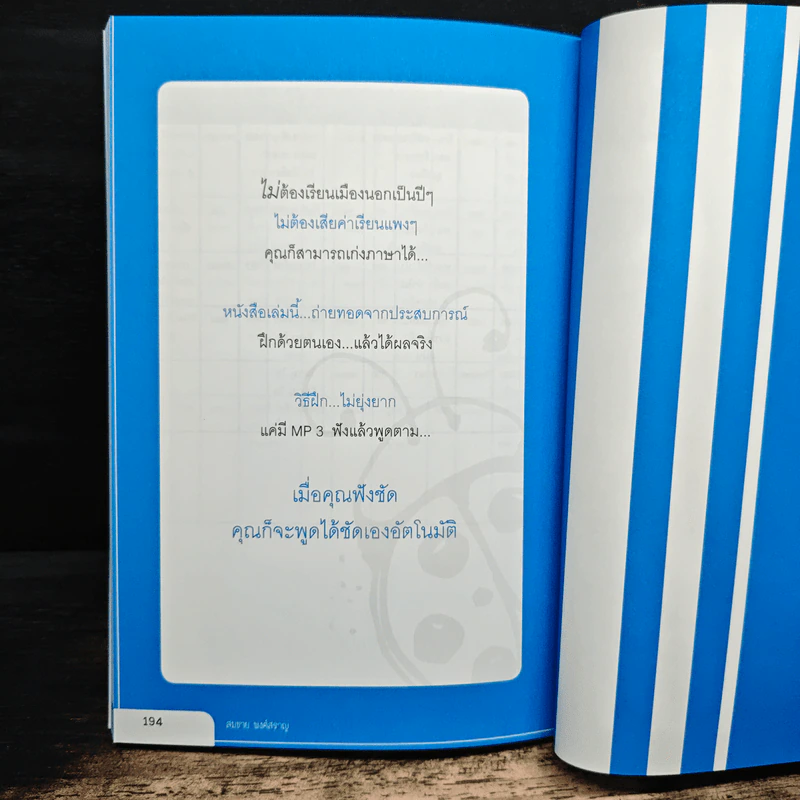 ไม่ต้องเรียนเมืองนอกเป็นปีๆ
ไม่ต้องเสียค่าเรียนแพงๆ
คุณก็สามารถเก่งภาษาได้...
หนังสือเล่มนี้...ถ่ายทอดจากประสบการณ์
ฝึกด้วยตนเอง...แล้วได้ผลจริง
วิธีฝึก...ไม่ยุ่งยาก
แค่มี MP 3 ฟังแล้วพูดตาม...
เมื่อคุณฟังชัด
คุณก็จะพูดได้ชัดเองอัตโนมัติ
194
สมชาย